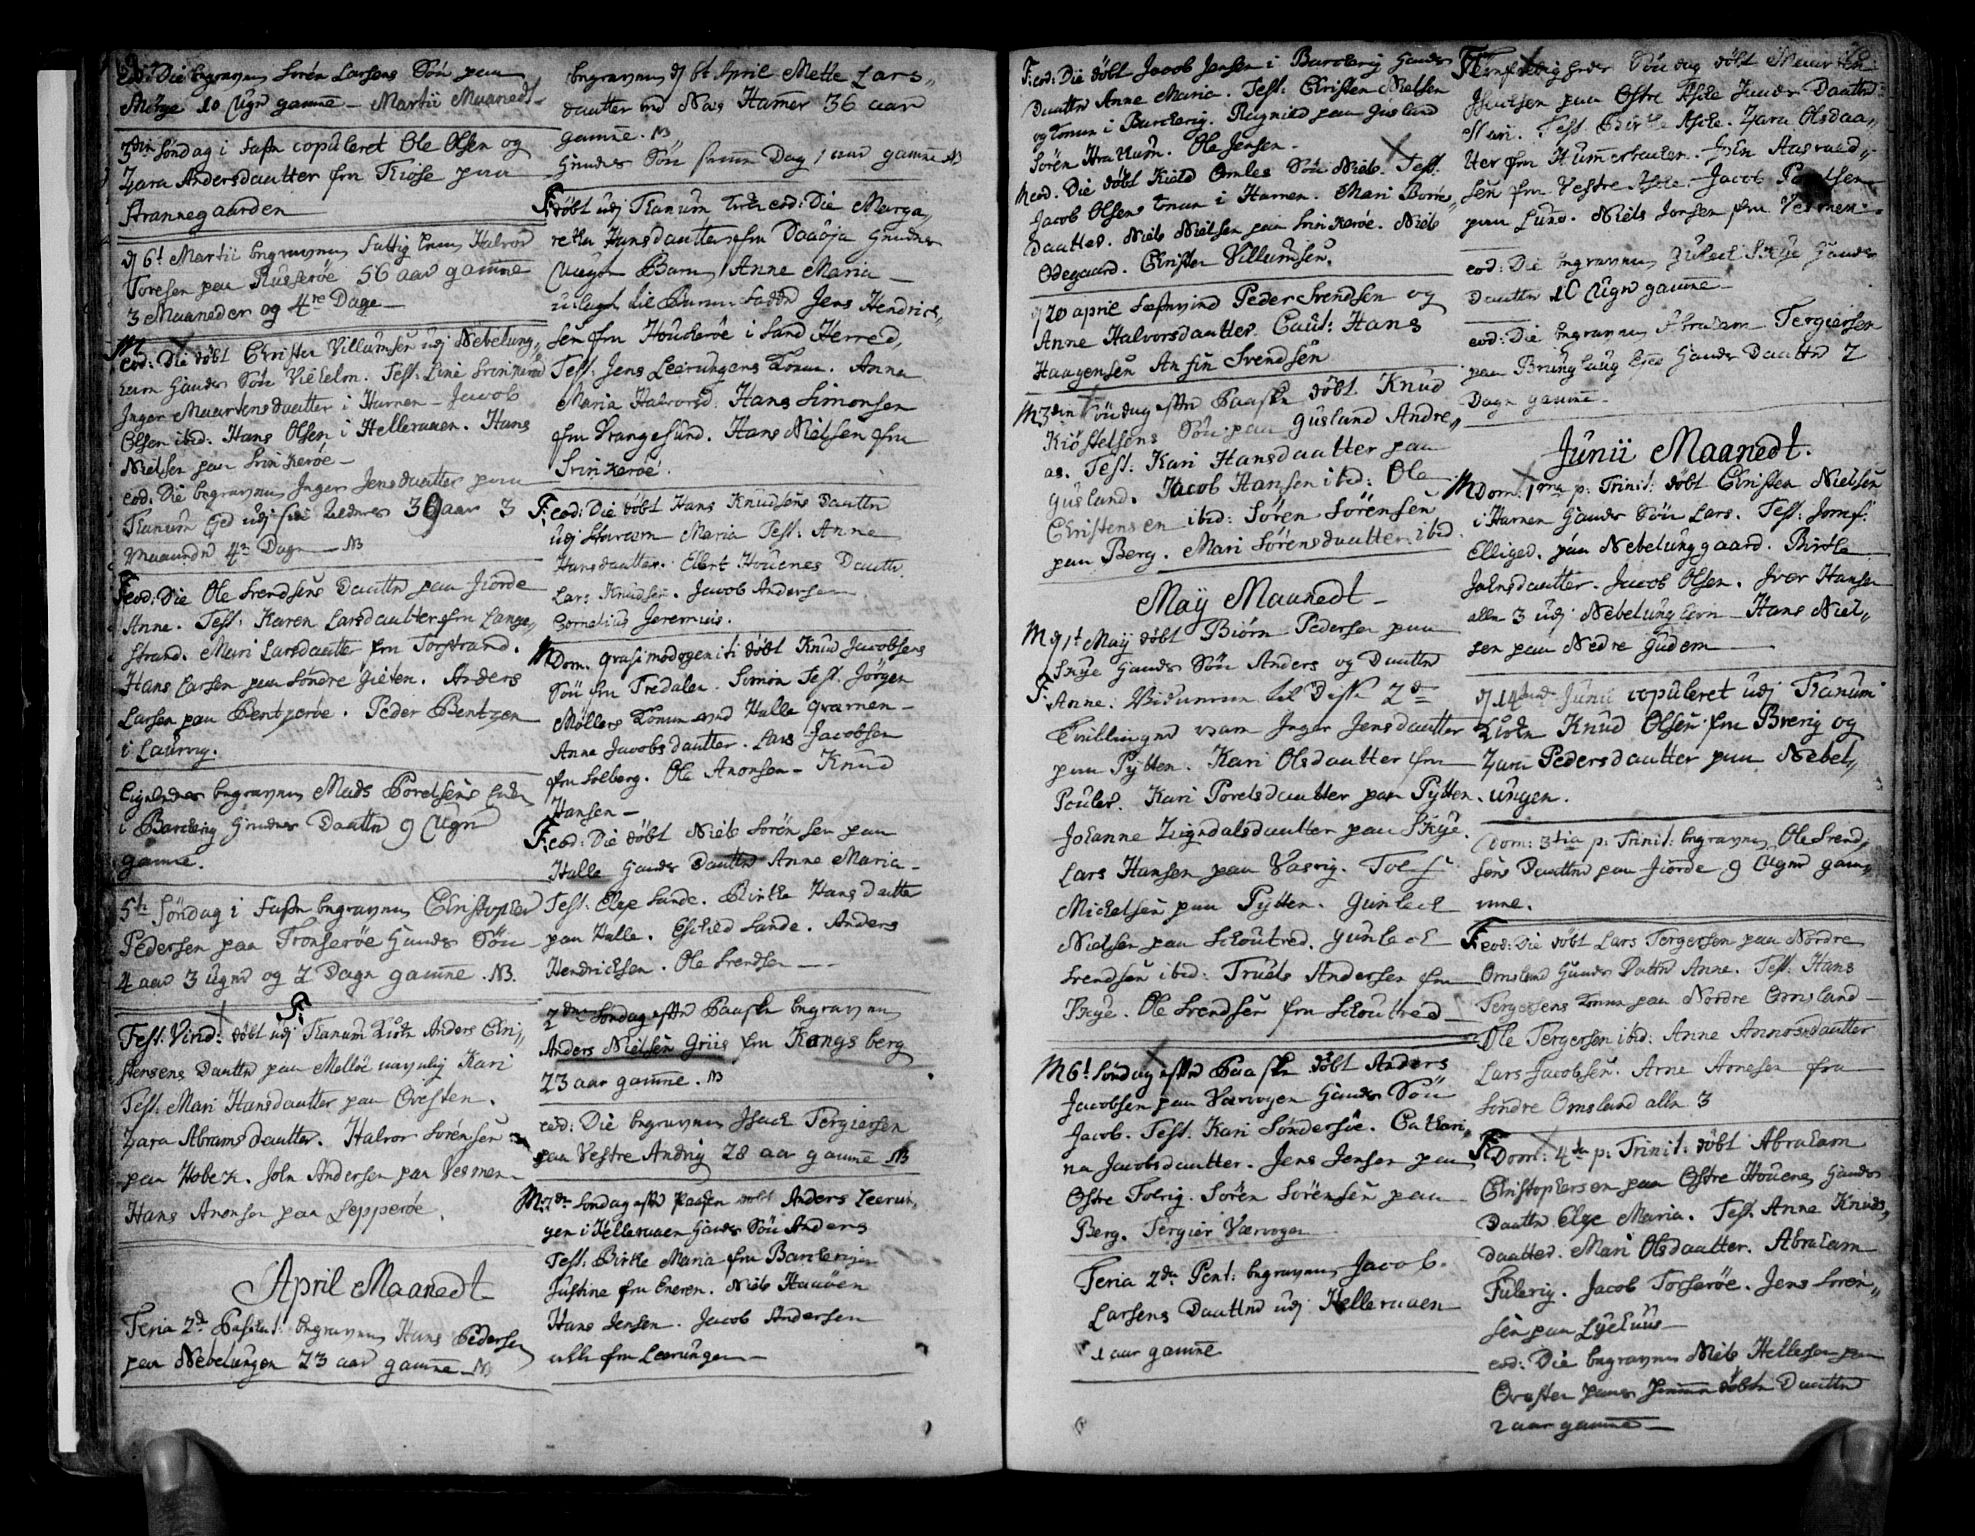 eod: Die begraven Sören Larsens Sön paa
Mörge 10 Uger gamle – Martii Maanedt
3die Söndag i Fasten copuleret Ole Olsen og
Zara Andersdaatter fra Kiose paa
Strannegaarden
d 6t Martii begraven fattig Lem Halvor
Toresen paa Russeröe 56 aar gamle
3 Maaneder og 4re Dage
M
eod: Die döbt Christen Villumsen udj Nebelung-
havn hands Sön Vilhelm. Test: Line Srinkeröe
Inger Maartensdaatter i Havnen – Jacob
Olsen ibid. Hans Olsen i Helleraaen. Hans
Nielsen paa Srinkeröe –
eod: Die begraven Inger Jensdaatter paa
Tanum Sted udj sin Alders 39 aar 3
Maaneder 4re Dage – NB
F. eod: Die Ole Srendsens Daatter paa Jiörde
Anne. Test: Karen Larsdaatter fra Lange-
strand. Mari Larsdaatter fra Torstrand.
Hans Larsen paa Söndre Gieten. Anders
Larsen paa Bentzeröe. Peder Bentzen
i Laurvig.
Eigeledes begraven Mads Poretsens
i Barchevig hendes Daatter 9 Uger
gamle.
5te Söndag i Fasten begraven Christopher
Pedersen paa Tronseröe hands Sön
4 aar 3 uger og 2 Dage gamle. NB.
F.
Fest: Virid: döbt udj Tanum Kirke Anders Chri-
stensens Daatter paa Mellöe navnlig Kari
Test: Mari Hansdaatter paa Ovesten.
Zara Abramsdaatter. Halvor Sörensen
paa Hobek. John Andersen paa Vesmen
Hans Anensen paa Lepperöe.
April Maanedt
Feria 2da Paschat: begraven Hans Pedersen
paa Nebelungen 23 aar gamle – NB
begraven d 6t April Mette Lars-
daatter ved Navs Hamer 36 aar
gamle. NB
hendes Sön samme Dag 1 aar gamle NB
F. döbt udj Tanum Kirke eod: Die Marga-
rethe Hansdaatter fra Daaöja hendes
Uægte Barn, Anne Maria
udlagt til Barne Fader Jens Hendrich-
sen fra Houkeröe i Sand Herred,
Test: Jens Leerungens Konne. Anne
Maria Halvorsd. Hans Simonsen
fra Vrangesund. Hans Nielsen fra
Srinkeröe.
F. eod: Die döbt Hans Knudsens Daatter
udj Starcem Maria Test: Anne
Hansdaatter. Ellert Houenes Daatter.
Lars Knudsen. Jacob Andersen
Cornelius Jeremiis.
M
Dom. Quasimodogeniti döbt Knud Jacobsens
Sön fra Tredalen. Simon Test. Jörgen
Möllers Konne ved Halle Qvarnen –
Anne Jacobsdaatter. Lars Jacobsen
fra Solberg. Ole Anonsen – Knud
Hansen –
F. eod: Die döbt Niels Sörensen paa
Halle hands Daatter Anne Maria –
Test: Else Sande. Birthe Hansdaatter
paa Halle. Eschild Sande. Anders
Hendricksen. Ole Srendsen –
2den Söndag efter Paaske begraven
Anders Nielsen Griis fra Kongsberg
23 aar gamle. NB
eod: Die begraven Isach Tergiersen
paa Vestre Andrig 28 aar gamle NB
M. 2den Söndag efter Paasken döbt Anders Leerun-
gen i Helleraaen hands Sön Anders
Test: Birthe Maria fra Barchevigen
Justine fra Eneren. Niels Haaöen
Hans Jensen. Jacob Andersen
alle fra Leerungen –
F. eod: Die döbt Jacob Jensen i Barchevig hands
Daatter Anne Maria. Test: Christen Nielsen
og Konne i Barchevig. Ragnild paa Gusland
Sören Ole Jensen.
M eod. Die döbt Kield Omles Sön Niels. Test.
Jacob Olsens Konne i Havnen. Mari Börre-
daatter. Niels Nielsen paa Srinkeröe. Niels
Ödegaard. Christen Villumsen.
d 20 april Peder Srendsen og
Anne Halvorsdaatter. Caut: Hans
Haagensen Anfin Srendsen
M 3den Söndag efter Paaske döbt Knud
Kiöstelsens Sön paa Gusland Andre-
as. Test: Kari Hansdaatter paa
Gusland. Jacob Hansen ibid: Ole
Christensen ibid: Sören Sörensen
paa Berg. Mari Sörensdaatter ibid.
Maÿ Maanedt –
M d 1t Maÿ döbt Biörn Pedersen paa
Skye hands Sön Anders og Daatter
F. Anne. Vidnerne til Disse 2de
Tvillinger vare Inger Jensdaatter
paa Pytten. Kari Olsdaatter fra
Pouler. Kari Poretsdaatter paa Pytten.
Johanne Zigerdalsdaatter paa Skye.
Lars Hansen paa Vasvig. Tol f
Mickelsen paa Pytten. Gunlech
Nielsen paa Skoutred. Gunlech
Srendsen ibid: Truels Andersen fra
Skye. Ole Srendsen fra Skoutred
M 6t Söndag efter Paaske döbt Anders
Jacobsen paa Varvogen hands Sön
Jacob. Test. Kari Söndersöe. Cathari-
na Jacobsdaatter. Jens Jensen paa
Östre Tolvig. Sören Sörensen paa
Berg. Tergier Værvogen
Feria 2da Pent: begraven Jacob
Larsens Daatter udj Helleraaen
1 aar gamle
F. Söndag döbt Maarten
Isachsen paa Östre Aske hands Daatter:
Mari. Test. Birthe Aske. Zara Olsdaa-
tter fra Hummerbacken. Hen Aasvaed-
sen fra Vestre Aske. Jacob Povelsen
paa Lund. Niels Jorsen fra Vesmen.
eod: Die begraven Gulach Skye hands
Daatter 10 Uger gamle
eod: Die begraven Abraham Tergiersen
paa Brunglaug Sted hands Daatter 2
Dage gamle.
Junii Maanedt.
M Dom: 1ma p: Trinit: döbt Christen Nielsen
i Havnen hands Sön Lars. Test: Jomf:
Elliged. paa Nebelunggaard. Birthe
Johnsdaatter. Jacob Olsen. Iver Hansen
alle 3 udj Nebelunghavn – Hans Niel-
sen paa Nedre Gudem
d 14tende Junii copuleret udj Tanum
Kirke Knud Olsen fra Brevig og
Zara Pedersdaatter paa Nebel-
ungen.
Dom: 3tia p: Trinit: begraven Ole Srend-
sens Daatter paa Jiörde 9 Uger gam-
mle.
F. eod: Die döbt Lars Tergersen paa Nordre
Omsland hands Datter Anne. Test: Hans
Tergersens Konne paa Nordre Omsland
Ole Tergersen ibid: Anne Annorsdaatter
Lars Jacobsen. Arne Arnesen fra
Söndre Omsland alle 3
F. Dom: 4ta p: Trinit: döbt Abraham
Christophersen paa Östre Houene hands
Daatter Else Maria. Test. Anne Knuds-
daatter. Mari Olsdaatter. Abraham
Fulevig. Jacob Torseröe. Jens Sören-
sen paa Lyehuus
eod: Die begraven Niels Hellesen paa
Ovesten hands hiemme döbte Daatter
2 aar gamle